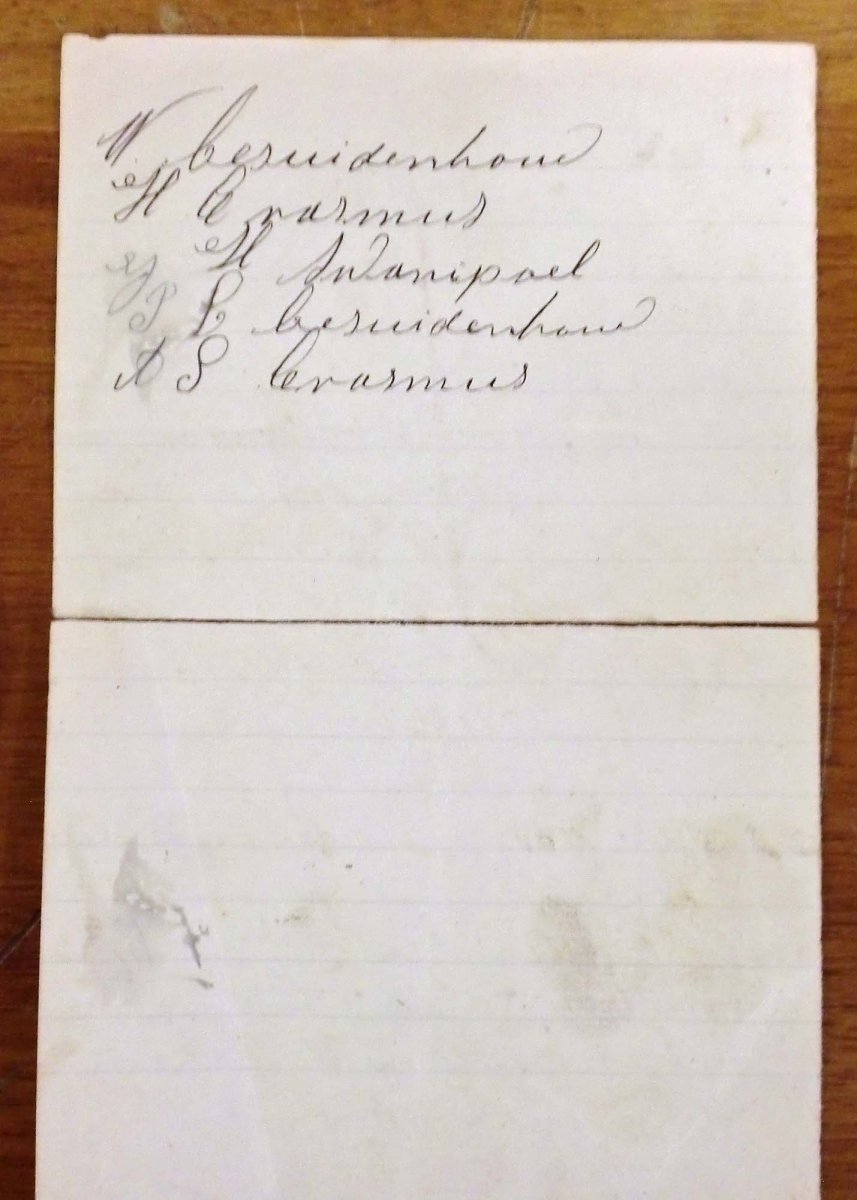 W besuidenhoud
H Erasmus
J H swanipoel
P L besuidenhoud
A S Erasmus